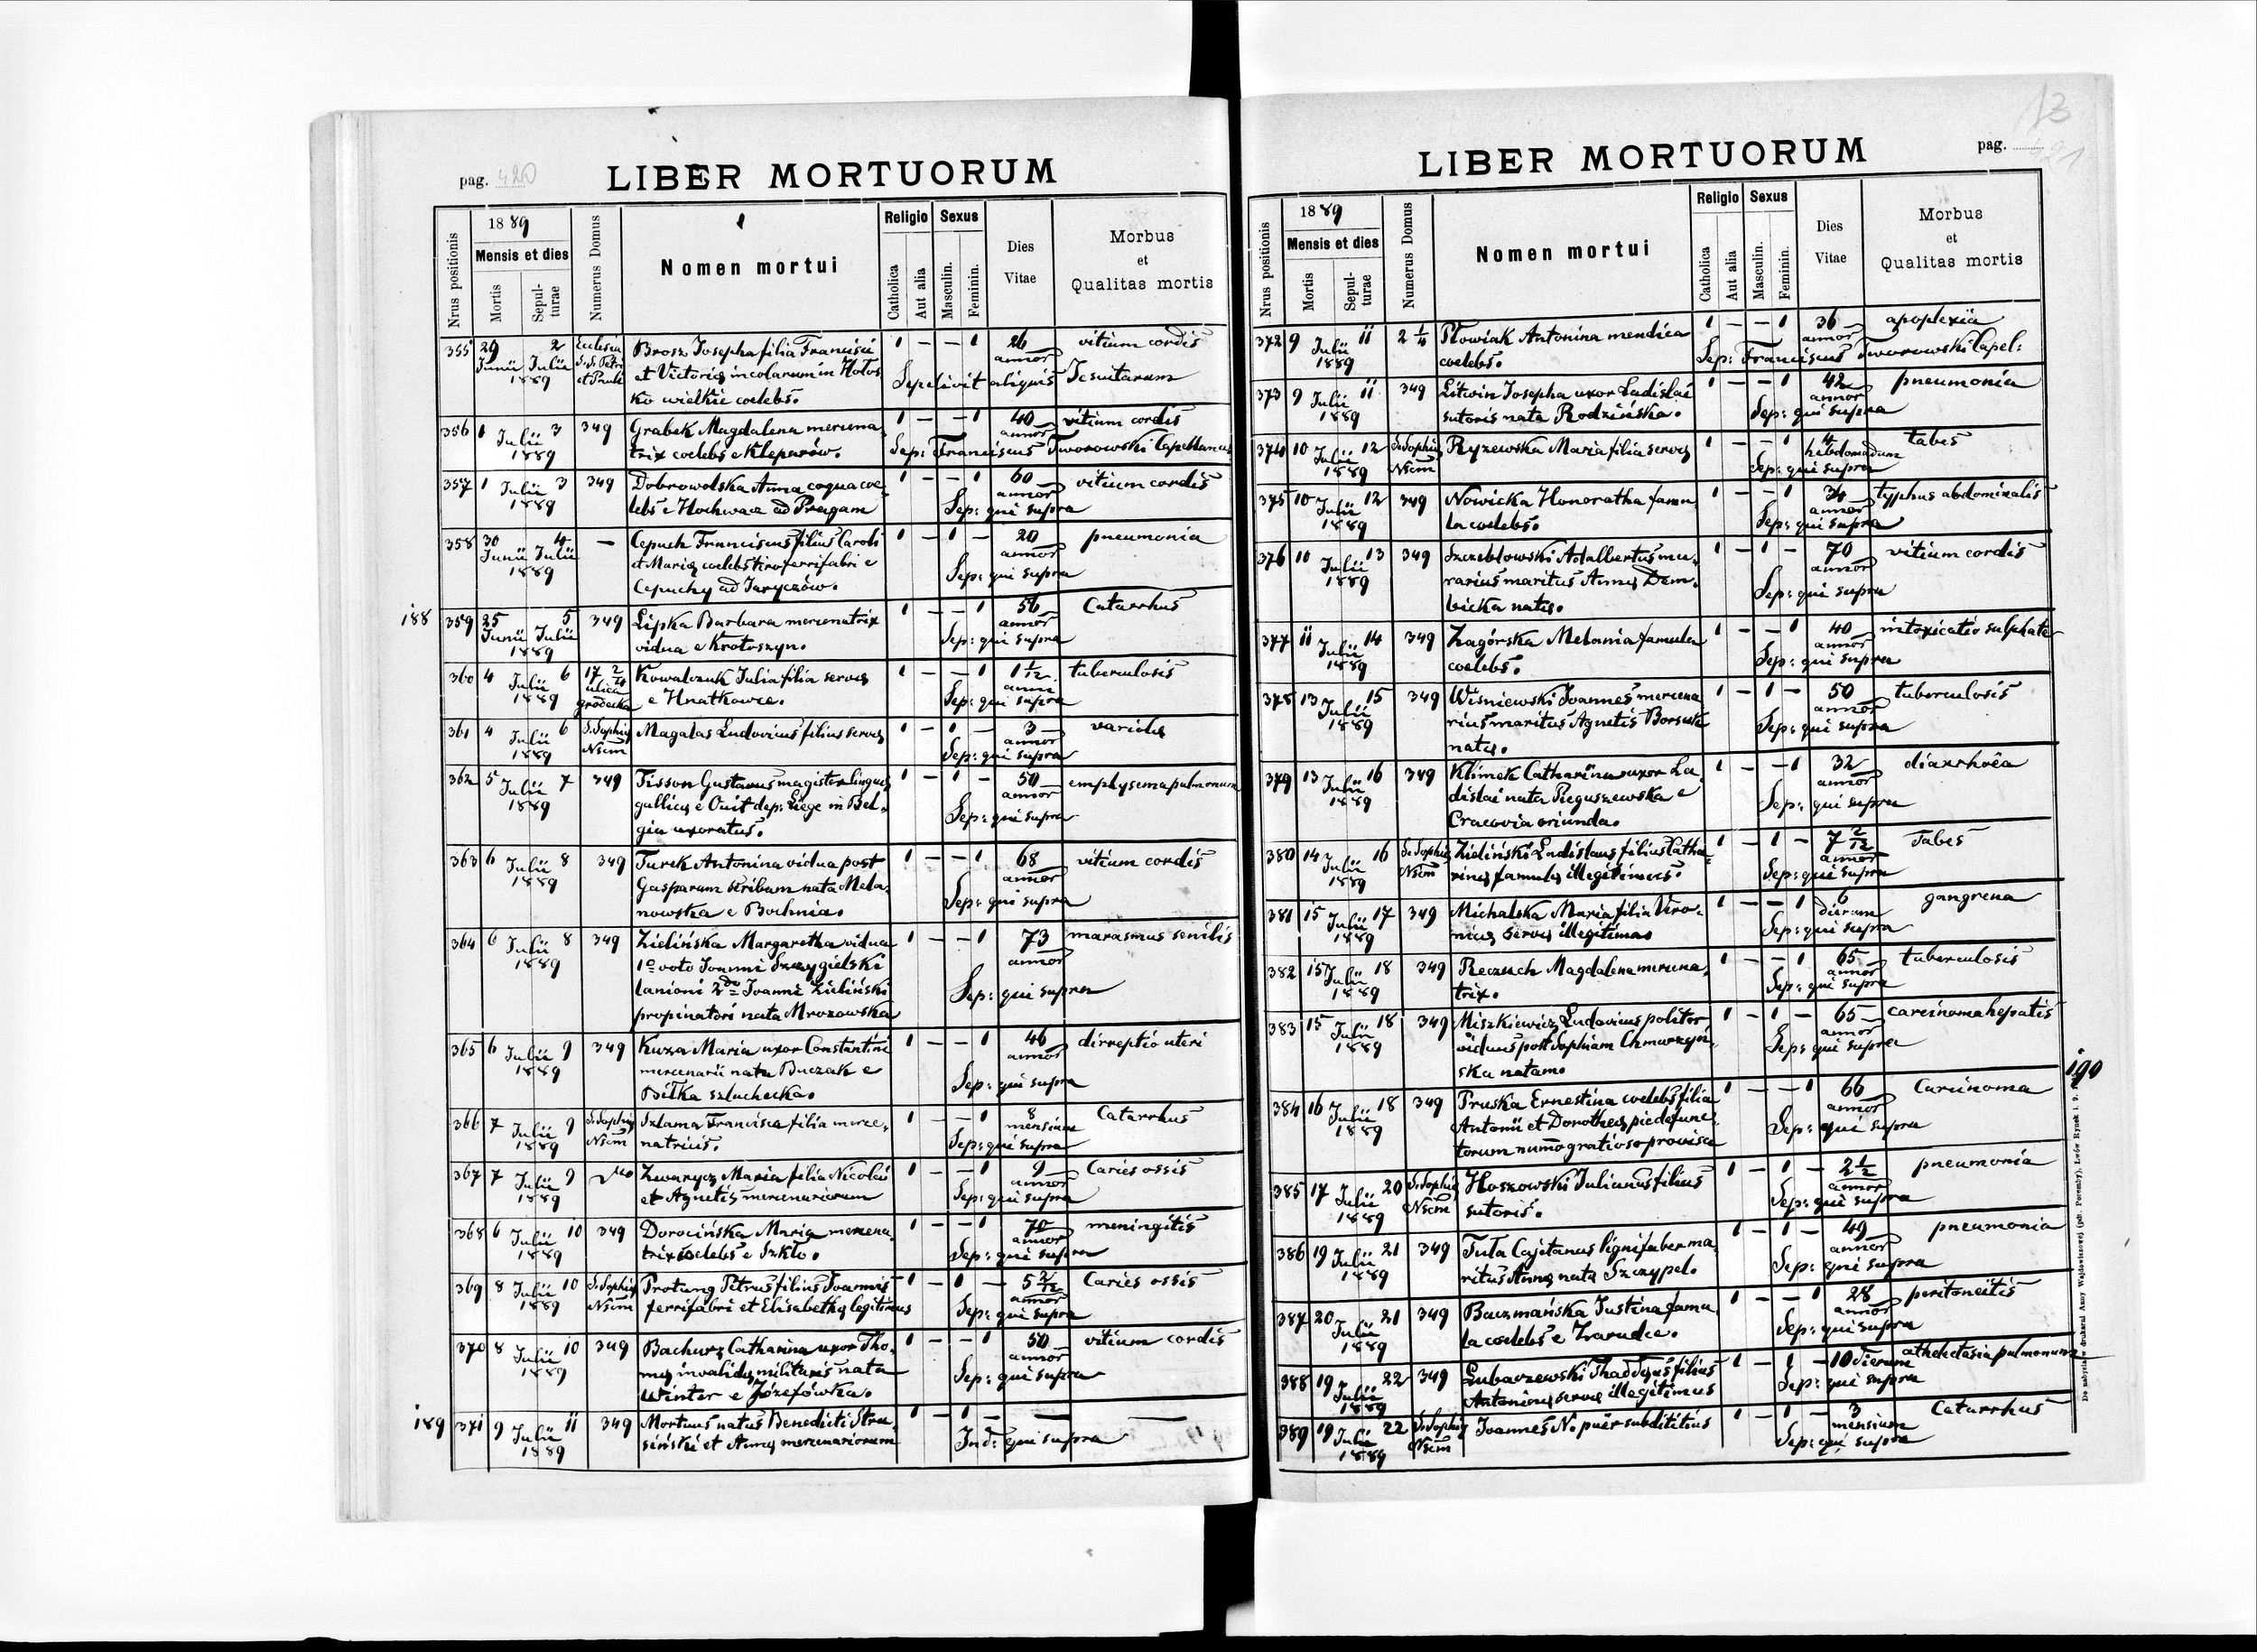 pag. 420
LIBER MORTUORUM
Nrus positionis
1889
Mensis et dies
Mortis
Sepul-
turae
Numerus Domus
Nomen mortui
Religio
Catholica
Aut alia
Sexus
Masculin.
Feminin.
Dies
Vitae
Morbus
et
Qualitas mortis
355 29 Junii 2 Julii 1889 Ecclesia S.S. Petri et Pauli
Brosz Josepha filia Francisci
et Victorię incolarum in Hołos
ko wielkie coelebs.
1 — — 1 26 annor vitium cordis
Sepelivit aliquis Jesuitarum
356 1 Julii 3 1889 349
Grabek Magdalena mercena
trix coelebs e Kleparów.
1 — — 1 40 annor vitium cordis
Sep: Franciscus Tworowski Capellanus
357 1 Julii 3 1889 349
Dobrowolska Anna coqua coe
lebs e Hochwac ad Pragam
1 — — 1 60 annor vitium cordis
Sep: qui supra
358 30 Junii 4 Julii 1889 —
Cepuch Franciscus filius Caroli
et Marię coelebs tiro ferrifabri e
Cepuchy ad Jaryczów.
1 — 1 — 20 annor pneumonia
Sep: qui supra
188
359 25 Junii 5 Julii 1889 349
Lipka Barbara mercenatrix
vidua e Krotoszyn.
1 — — 1 56 annor Catarrhus
Sep: qui supra
360 4 Julii 6 1889 17 2/4 ulica gródecka
Kowalczuk Julia filia servę
e Hnatkowce.
1 — — 1 1 1/12 anni tuberculosis
Sep: qui supra
361 4 Julii 6 1889 S. Sophię Nsim
Magalas Ludovicus filius servę
1 — 1 — 3 annor variolę
Sep: qui supra
362 5 Julii 7 1889 349
Tisson Gustavus magister linguę
gallicę e Ouit dep: Liege in Bel.
gia uxoratus.
1 — 1 — 50 annor emphysema pulmonum
Sep: qui supra
363 6 Julii 8 1889 349
Turek Antonina vidua post
Gasparum scribam nata Mela
nowska e Bochnia.
1 — — 1 68 annor vitium cordis
Sep: qui supra
364 6 Julii 8 1889 349
Zielińska Margaretha vidua
1º voto Joanni Szczygielski
lanioni 2do Joanni Zieliński
propinatori nata Mrozowska
1 — — 1 73 annor marasmus senilis
Sep: qui supra
365 6 Julii 9 1889 349
Kuza Maria uxor Constantini
mercenarii nata Buczak e
Biłka szlachecka.
1 — — 1 46 annor dirreptio uteri
Sep: qui supra
366 7 Julii 9 1889 S. Sophię Nsim
Szlama Francisca filia merce,
natricis.
1 — 1 8 mensium Catarrhus
Sep: qui supra
367 7 Julii 9 1889
Zwarycz Maria filia Nicolai
et Agnetis mercenariorum
1 — — 1 9 annor Caries ossis
Sep: qui supra
368 6 Julii 10 1889 349
Dorocińska Maria mercena
trix coelebs e Szkło.
1 — — 1 70 annor meningitis
Sep: qui supra
369 8 Julii 10 1889 S. Sophię Nsim
Protung Petrus filius Joannis
ferrifabri et Elisabethę legitimus
1 — 1 — 5 2/12 annor Caries ossis
Sep: qui supra
370 8 Julii 10 1889 349
Bachurz Catharina uxor Tho
mę invalidę militaris nata
Winter e Józefówka.
1 — — 1 50 annor vitium cordis
Sep: qui supra
189
371 9 Julii 11 1889 349
Mortuus natus Benedicti Stra
siński et Annę mercenariorum
1 — 1 — — —
Ind: qui supra
13
pag. 421
LIBER MORTUORUM
Nrus positionis
1889
Mensis et dies
Mortis
Sepul-
turae
Numerus Domus
Nomen mortui
Religio
Catholica
Aut alia
Sexus
Masculin.
Feminin.
Dies
Vitae
Morbus
et
Qualitas mortis
372 9 Julii 11 1889 2 1/4
Płowiak Antonina mendica
coelebs.
1 — — 1 36 annor apoplexia
Sep: Franciscus Tworowski Capel:
373 9 Julii 11 1889 349
Litwin Josepha uxor Ladislai
sutoris nata Rodzińska.
1 — — 1 42 annor pneumonia
Sep: qui supra
374 10 Julii 12 1889 S. Sophię Nsim
Ryzewska Maria filia servę
1 — — 1 4 hebdomadum tabes
Sep: qui supra
375 10 Julii 12 1889 349
Nowicka Honoratha famu
la coelebs.
1 — — 1 34 annor typhus abdominalis
Sep: qui supra
376 10 Julii 13 1889 349
Szczebłowski Adalbertus mu.
rarius maritus Annę Dem.
bicka natę.
1 — 1 — 70 annor vitium cordis
Sep: qui supra
377 11 Julii 14 1889 349
Zagórska Melania famula
coelebs.
1 — — 1 40 annor intoxicatio sulphate
Sep: qui supra
378 13 Julii 15 1889 349
Wisniewski Joannes mercena
rius maritus Agnetis Borsuk
natę.
1 — 1 — 50 annor tuberculosis
Sep: qui supra
379 13 Julii 16 1889 349
Klimek Catharina uxor La
dislai nata Reguszewska e
Cracovia oriunda.
1 — — 1 32 annor diarrhoea
Sep: qui supra
380 14 Julii 16 1889 S. Sophię Nsim
Zieliński Ladislaus filius Catha
rinę famulę illegitimus.
1 — 1 — 7 2/12 annor Tabes
Sep: qui supra
381 15 Julii 17 1889 349
Michalska Maria filia Vero.
nicę servę illegitima
1 — — 1 6 dierum gangrena
Sep: qui supra
382 15 Julii 18 1889 349
Reczuch Magdalena mercena,
trix.
1 — — 1 65 annor tuberculosis
Sep: qui supra
383 15 Julii 18 1889 349
Miszkiewicz Ludovicus politor
viduus post Sophiam Chmurzyń.
ska natam.
1 — 1 — 65 annor carcinoma hepatis
Sep: qui supra
190
384 16 Julii 18 1889 349
Pruska Ernestina coelebs filia
Antonii et Dorotheę pie defunc.
torum numo gratioso provisa
1 — — 1 66 annor Carcinoma
Sep: qui supra
385 17 Julii 20 1889 S. Sophię Nsim
Hoszowski Julianus filius
sutoris.
1 — 1 — 2 1/2 annor pneumonia
Sep: qui supra
386 19 Julii 21 1889 349
Tuła Cajetanus lignifaber ma
ritus Annę nata Szczypel.
1 — 1 — 49 annor pneumonia
Sep: qui supra
387 20 Julii 21 1889 349
Baczmańska Justina famu
la coelebs e Zarudce.
1 — — 1 28 annor peritoneitis
Sep: qui supra
388 19 Julii 22 1889 349
Lubaczewski Thaddęus filius
Antoninę servę illegitimus
1 — 1 — 10 dierum athelectasia pulmonum
Sep: qui supra
389 19 Julii 22 1889 S. Sophię Nsim
Joannes N. puer subdititius
1 — 1 — 3 mensium Catarrhus
Sep: qui supra
Do nabycia w drukarni Anny Wajdowiczowej (pdr. Poremby), Lwów Rynek l. 9.